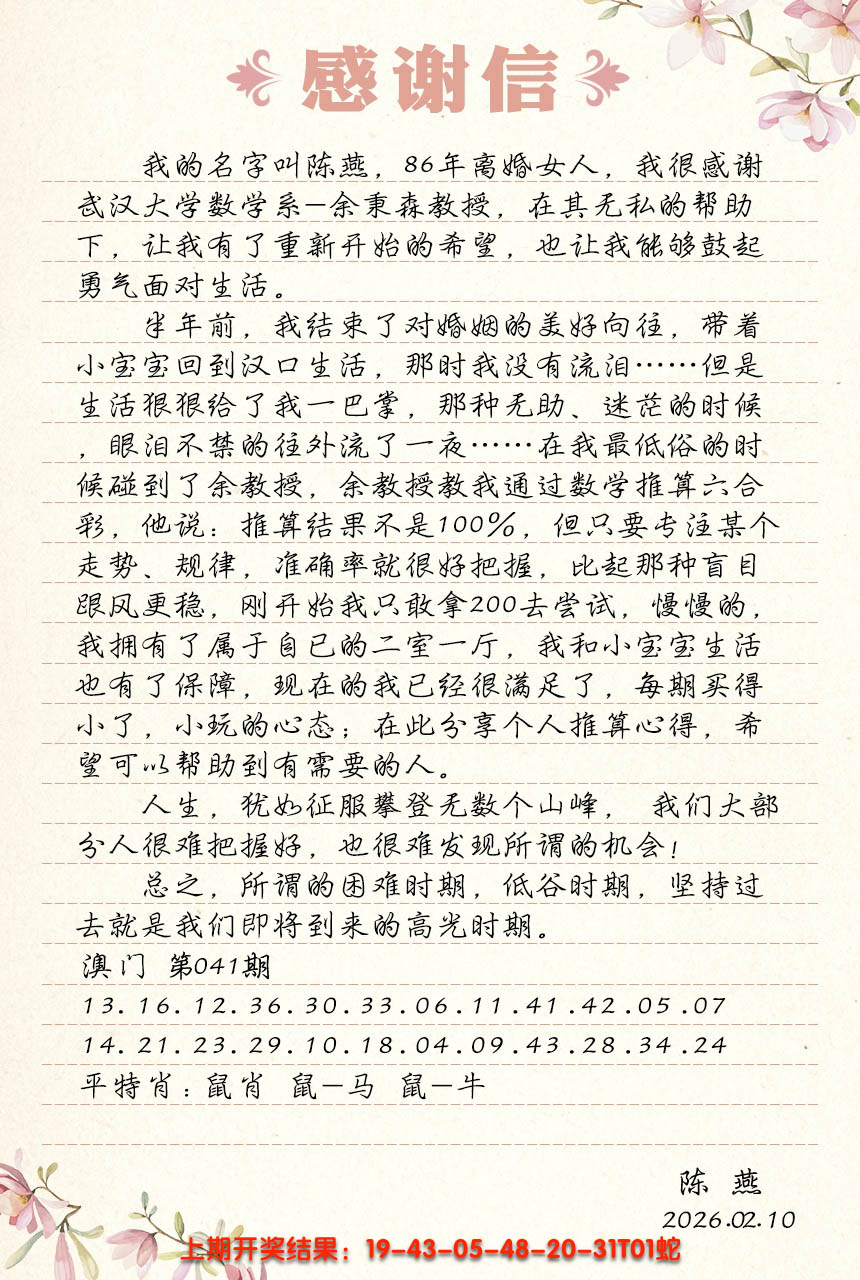 感谢信
我的名字叫陈燕，86年离婚女人，我很感谢
武汉大学数学系-余秉森教授，在其无私的帮助
下，让我有了重新开始的希望，也让我能够鼓起
勇气面对生活。
半年前，我结束了对婚姻的美好向往，带着
小宝宝回到汉口生活，那时我没有流泪……但是
生活狠狠给了我一巴掌，那种无助、迷茫的时候
，眼泪不禁的往外流了一夜……在我最低俗的时
候碰到了余教授，余教授教我通过数学推算六合
彩，他说：推算结果不是100%，但只要专注某个
走势、规律，准确率就很好把握，比起那种盲目
跟风更稳，刚开始我只敢拿200去尝试，慢慢的，
我拥有了属于自已的二室一厅，我和小宝宝生活
也有了保障，现在的我已经很满足了，每期买得
小了，小玩的心态；在此分享个人推算心得，希
望可以帮助到有需要的人。
人生，犹如征服攀登无数个山峰， 我们大部
分人很难把握好，也很难发现所谓的机会！
总之，所谓的困难时期，低谷时期，坚持过
去就是我们即将到来的高光时期。
澳门 第041期
13.16.12.36.30.33.06.11.41.42.05.07
14.21.23.29.10.18.04.09.43.28.34.24
平特肖：鼠肖 鼠-马 鼠-牛
陈 燕
2026.02.10
上期开奖结果：19-43-05-48-20-31T01蛇